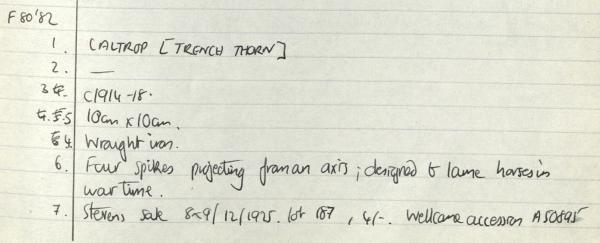 F80'82
1. CALTROP [TRENCH THORN]
2. —
3. c1914-18.
5 10cm x 10cm.
4. Wrought iron.
6. Four spikes projecting from an axis; designed to lame horses in
war time.
7. Stevens sale 8&9/12/1925. lot 187, 4/-. Wellcome accession A50895